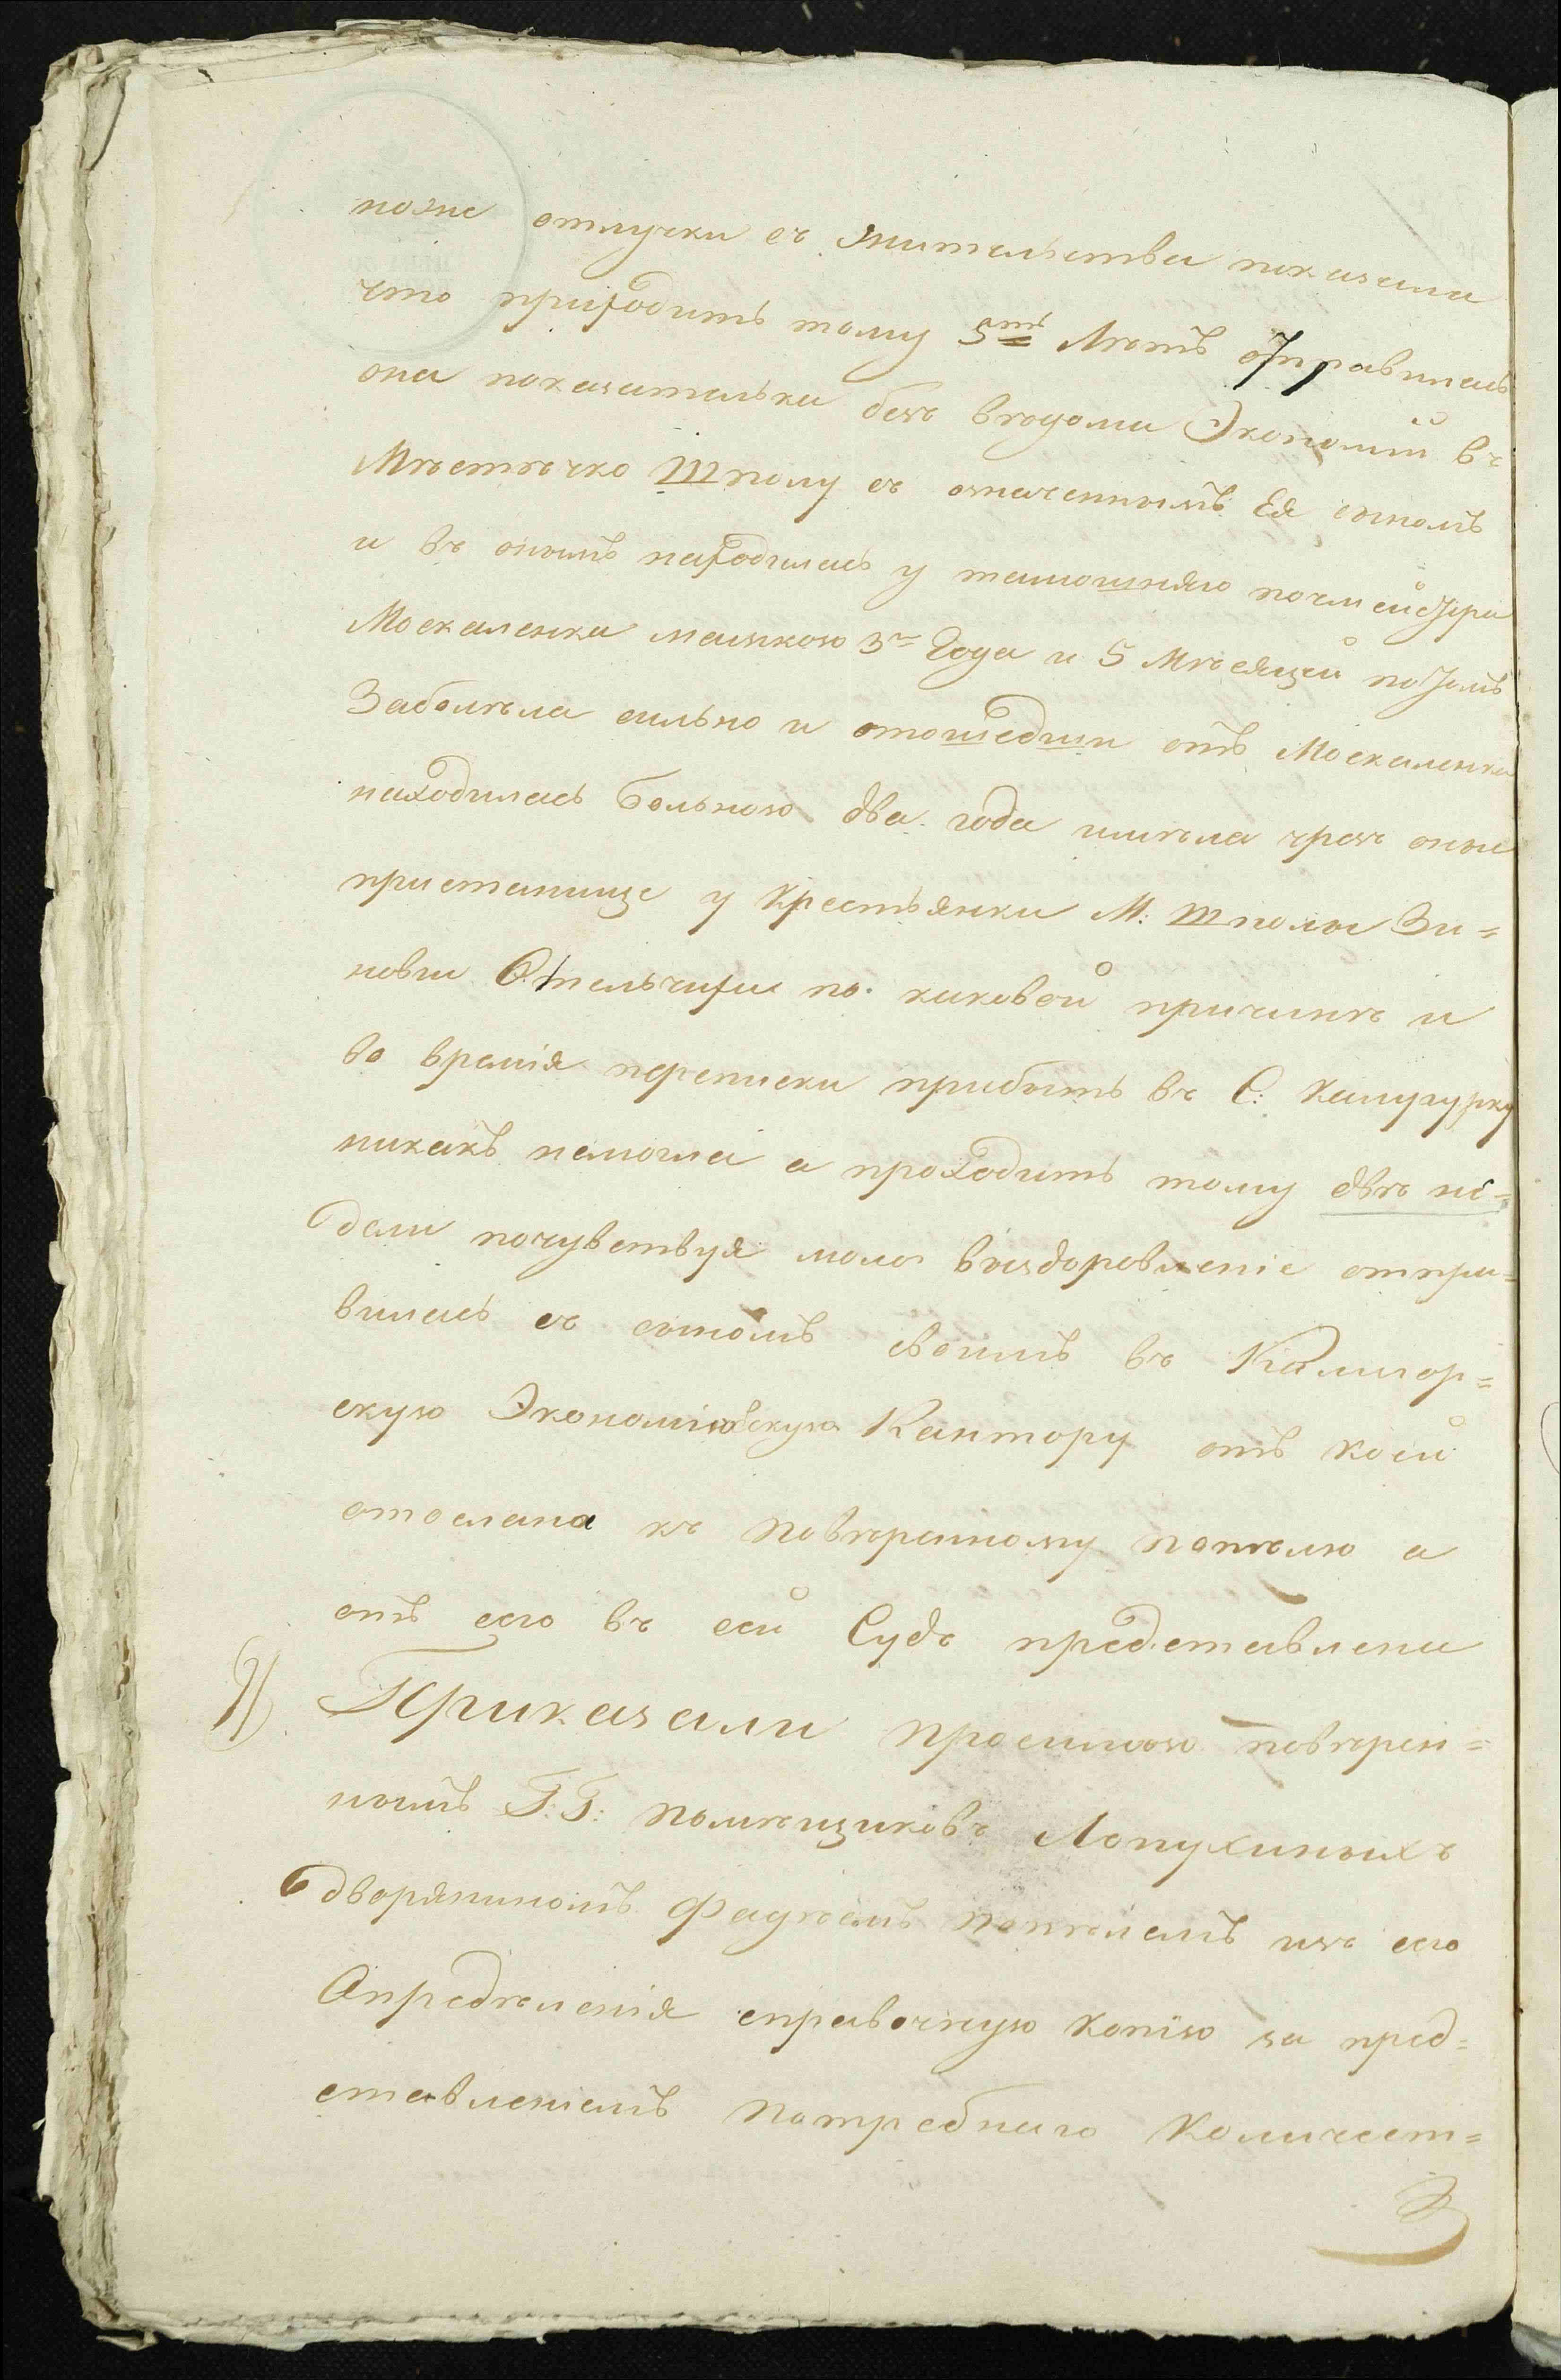 позже отлучки съ жительства показала
что приходитъ тому 5ть Лѣтъ отправилась
она показателька безъ вѣдома Экономіи въ
Мѣстѣчко Шполу съ означеннымъ Ея сыномъ
и въ ономъ находилась у тамошняго почмейстера
Москаленка мамкою 3и Года и 5 Мѣсяцей потомъ
Заболѣла сильно и отошедши отъ Москаленка
находилась больною два года имѣла чрезъ оные
пристанище у Крестьянки М: Шполы Зи=
новіи по каковой причинѣ и
во время переписки прибыть въ С:
никакъ немогла а проходитъ тому двѣ не=
дели почувствуя мало выздоровленіе отпра=
вилась съ сыномъ своимъ въ Калигор=
скую Экономическую Кантору отъ коей
отослана къ повѣренному Попѣлю а
отъ его въ сей Судъ представлена
Приказали просимою повѣрен=
нымъ Г:Г: помѣщиковъ Лопухиныхъ
дворяниномъ Фадѣемъ Попѣлемъ изъ сего
Опредѣленія справочную копію за пред=
ставленіемъ потребнаго Количест=